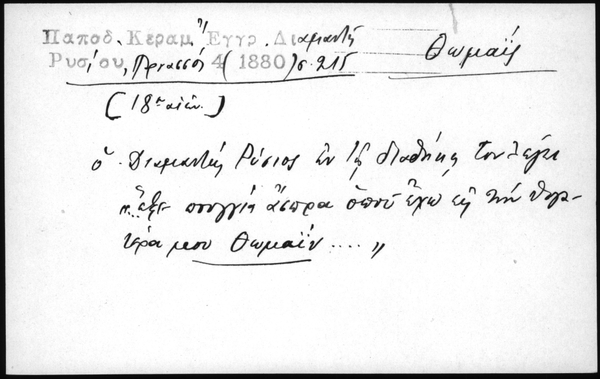 Παποδ. Κεραμ. Ἔγγρ. Διαμαντῆ Θωμαΐς
Ρυσίου, Παρνασσός 4 (1880) σ. 215
(18ος αἰών.)
ὁ Διαμαντῆς Ρύσιος ἐν τῇ διαθήκῃ του λέγει
πουγγιά ἄσπρα ὁποῦ ἔχω εἰς τήν θυγα-
τέρα μου Θωμαΐν .... „